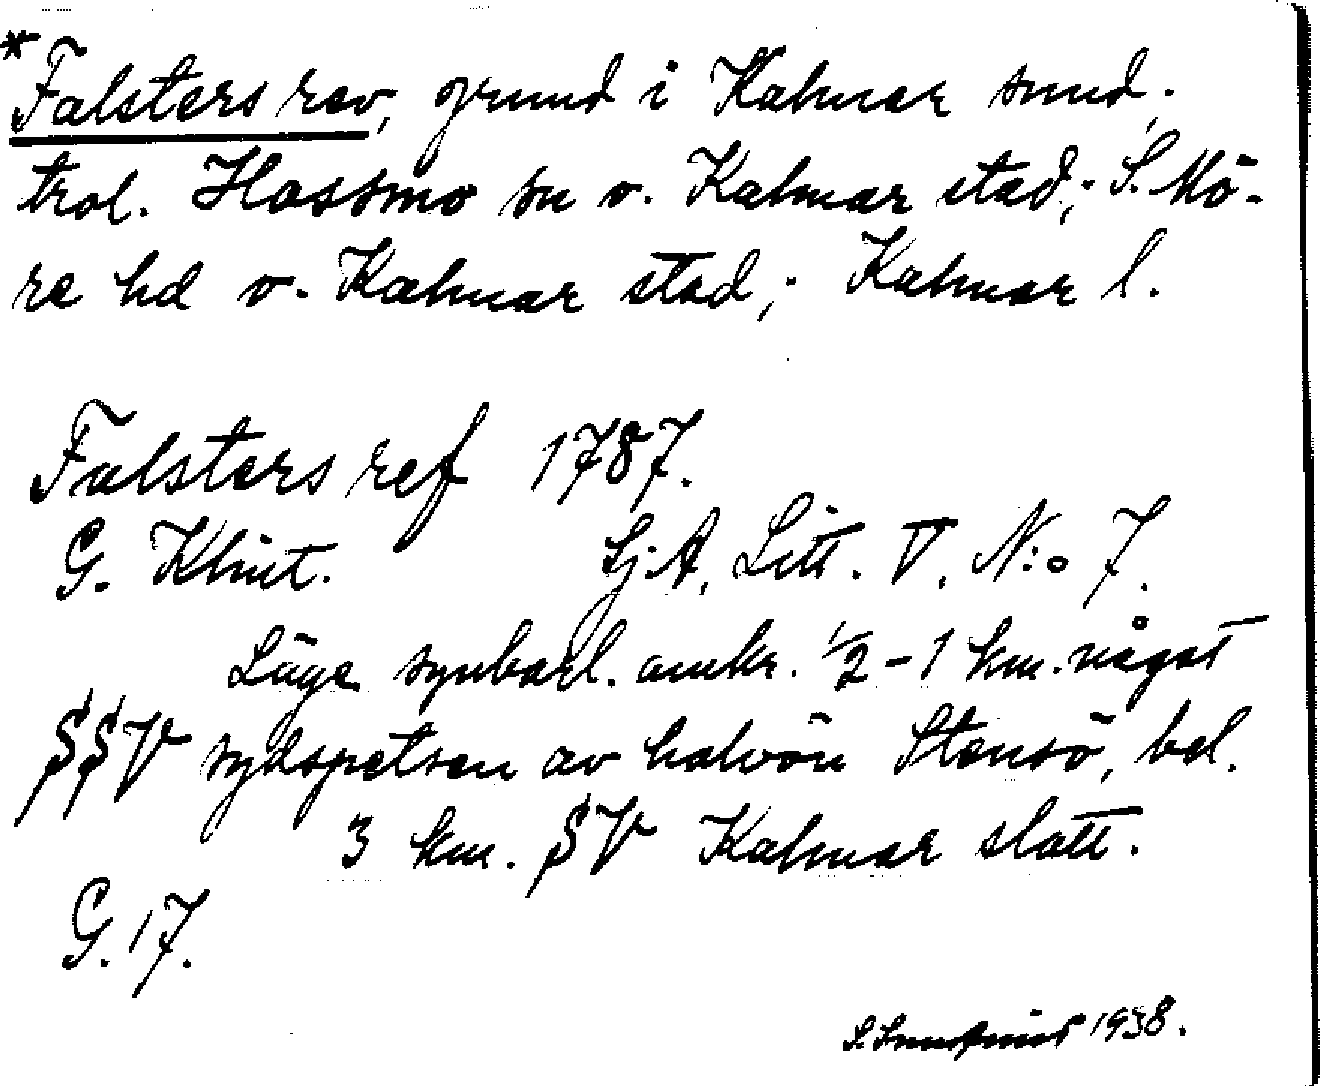 *Falsters rev, grund i Kalmar sund,
trol. Hossmo sn o. Kalmar stad; S. Mö-
re hd o. Kalmar stad; Kalmar l.
Falsters ref 1787.
G. Klint. Sj. A, Litt. V. N:o 7.
Läge synbarl. omkr. 1/2-1 km. något
SSV sydspetsen av halvön Stensö, bel.
3 km. SV Kalmar slott.
G. 17.
1938.